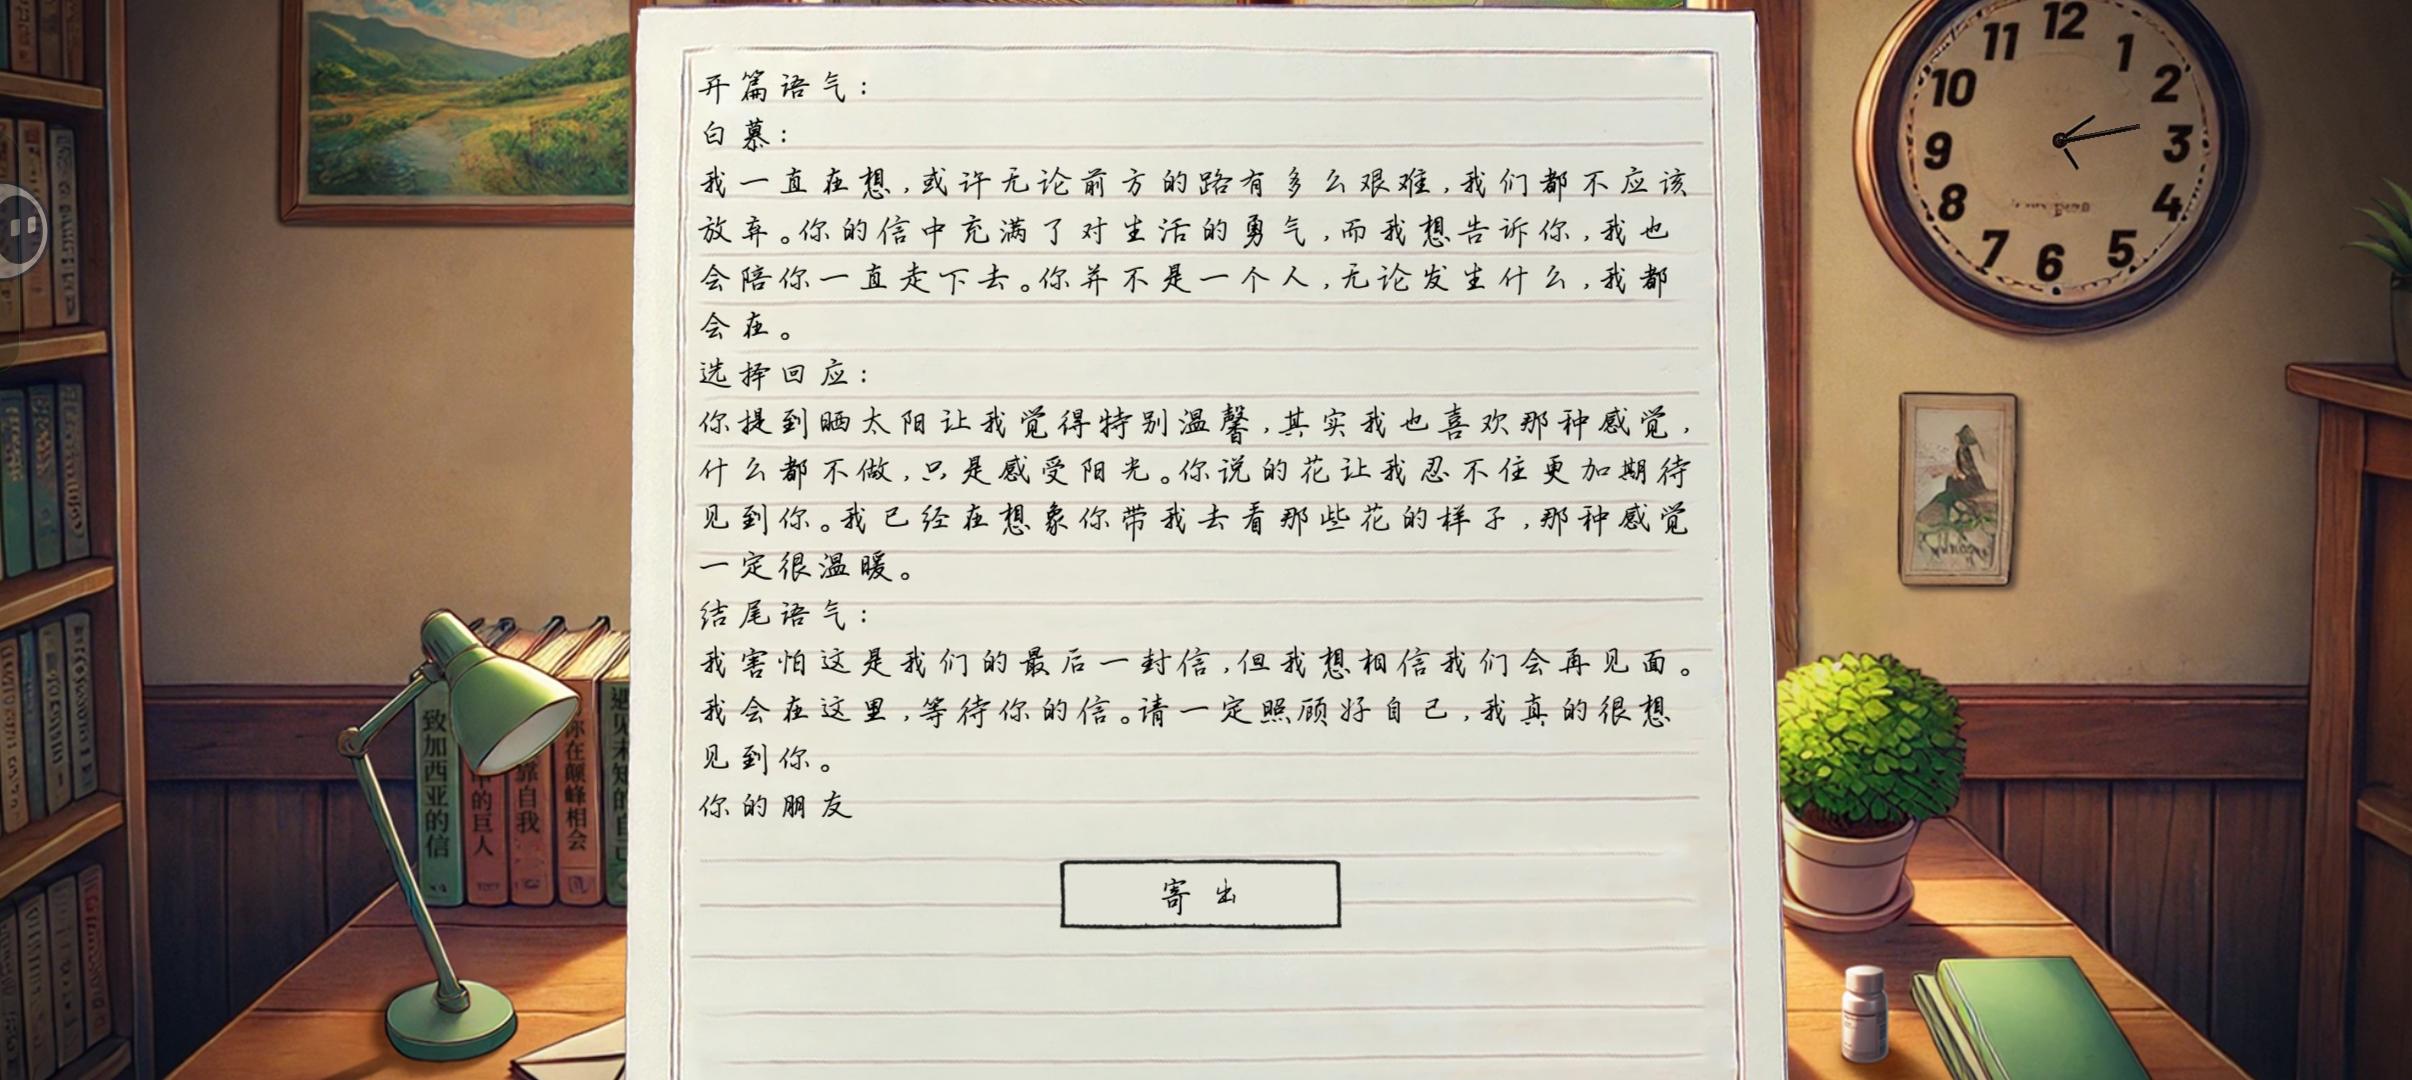 开篇语气：
白慕：
我一直在想，或许无论前方的路有多么艰难，我们都不应该
放弃。你的信中充满了对生活的勇气，而我想告诉你，我也
会陪你一直走下去。你并不是一个人，无论发生什么，我都
会在。
选择回应：
你提到晒太阳让我觉得特别温馨，其实我也喜欢那种感觉，
什么都不做，只是感受阳光。你说的花让我忍不住更加期待
见到你。我已经在想象你带我去看那些花的样子，那种感觉
一定很温暖。
结尾语气：
我害怕这是我们的最后一封信，但我想相信我们会再见面。
我会在这里，等待你的信。请一定照顾好自己，我真的很想
见到你。
你的朋友
寄出
12
11
1
10
2
9
3
8
4
7
5
6
致加西亚的信
的巨人
靠自我
你在巅峰相会
遇见未知的自己